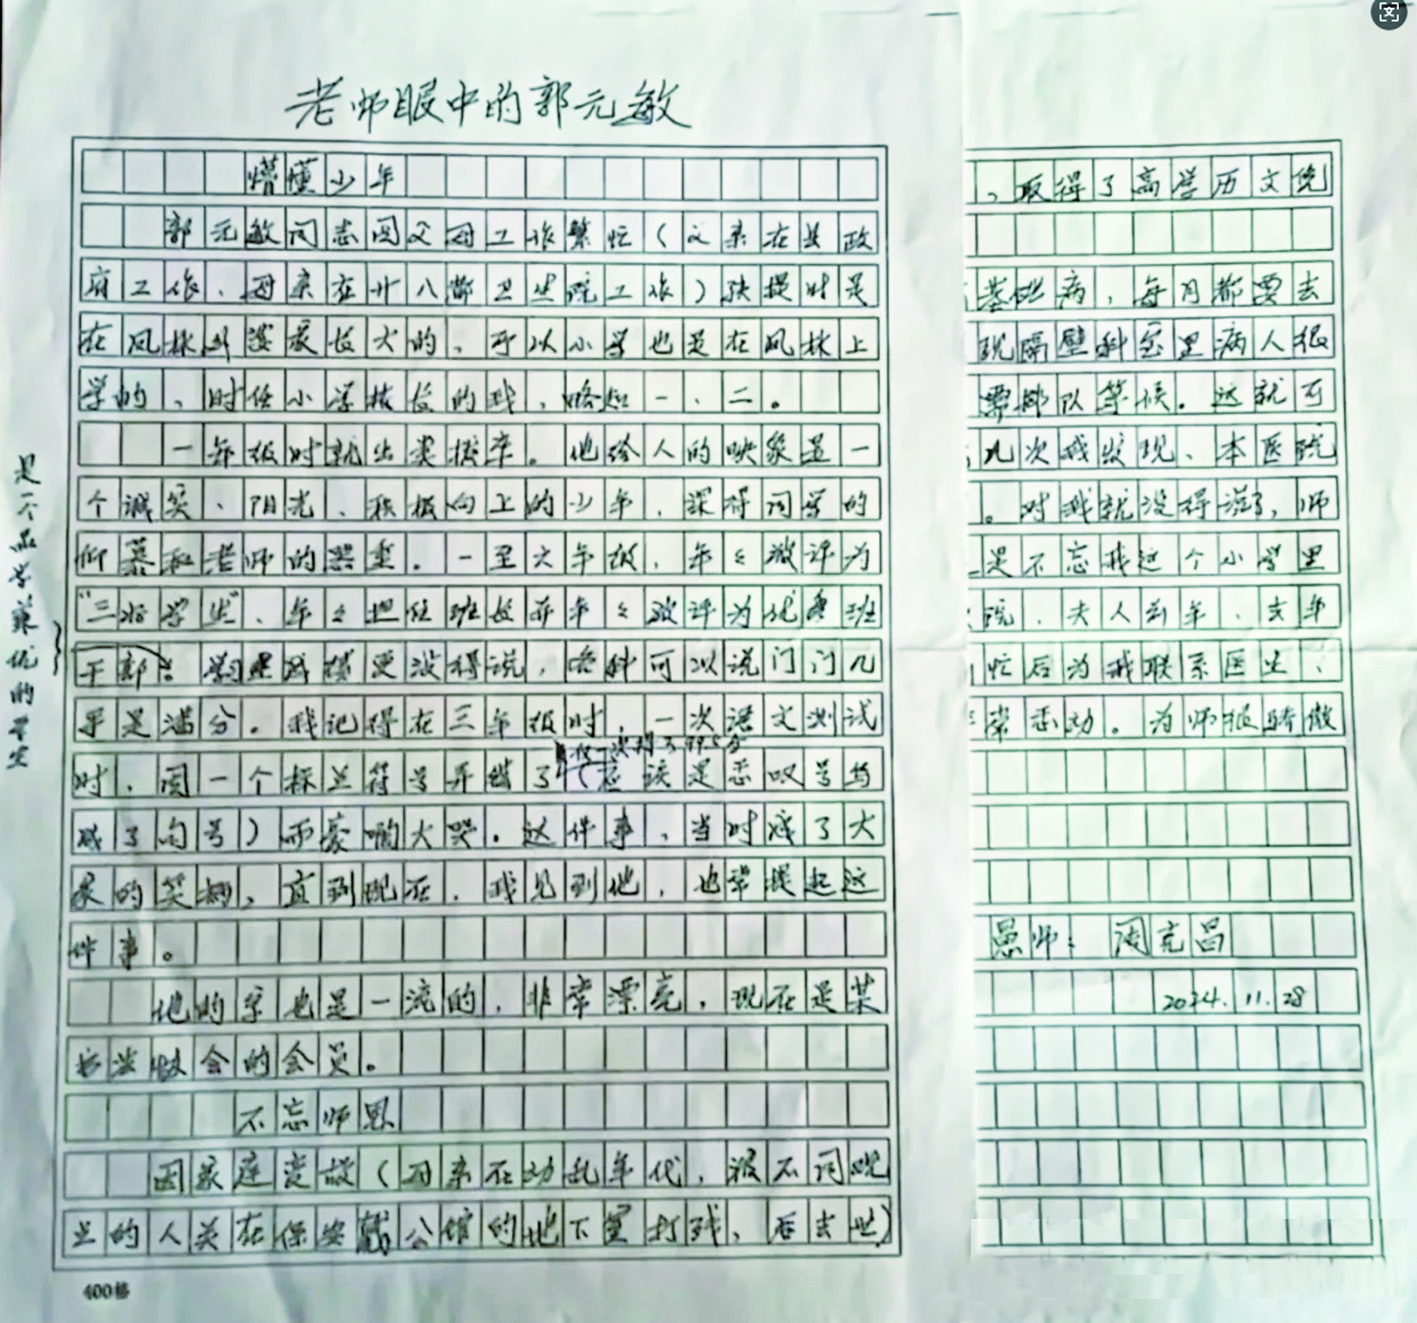 老师眼中的郭元敏
懵懂少年
郭元敏同志因父母工作繁忙(父亲在县政
府工作、母亲在廿八都卫生院工作)孩提时是
在凤林外婆家长大的、所以小学也是在凤林上
学的、时任小学校长的我、略知一、二。
一年级时就出类拔卒。他给人的映象是一
个诚实、阳光、积极向上的少年,深得同学的
仰慕和老师的器重。一至六年级,年々被评为
"三好学生"、年々担任班长并年々被评为优秀班
干部:学习成绩更没得说,各科可以说门门几
乎是满分。我记得在三年级时,一次语文测试
时,因一个标点符号弄错了(应该是感叹号写
成了句号)而豪啕大哭。这件事,当时成了大
家的笑柄,直到现在,我见到他,也常提起这
件事。
他的字也是一流的,非常漂亮,现在是某
书法协会的会员。
不忘师恩
因家庭变故(母亲在动乱年代,被不同观
点的人关在保安戴公馆的地下室打残、后去世)
400格
是一个品学兼优的学生
次得了99.5分
、取得了高学历文凭
基础病,每月都要去
现隔壁科室里病人很
要排队等候。这就可
几次我发现、本医院
。对我就没得说了,师
是不忘我这个小学里
院,夫人去年、去年
忙后为我联系医生,
常感动。为师很骄傲
愚师:周克昌
2024.11.28